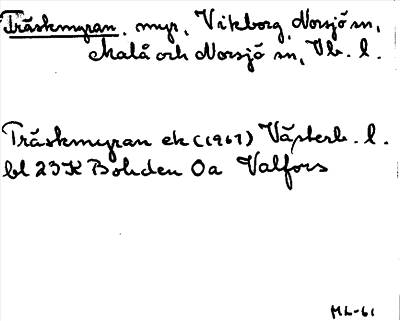 Träskmyran, myr, Vikborg, Norsjö sn,
Malå och Norsjö sn, Vb. l.
Träskmyran ek (1967) Västerb. l.
bl 23K Boliden 0a Valfors